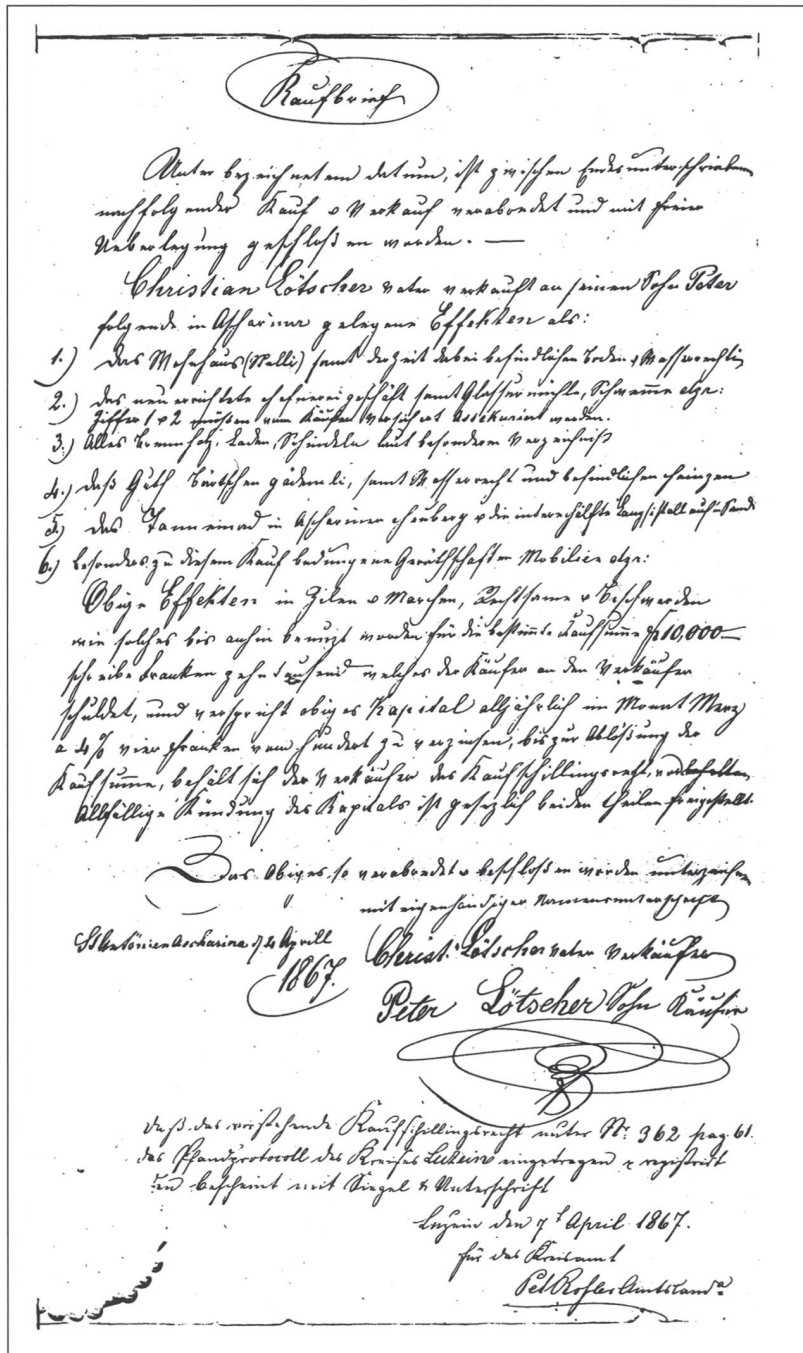 Kaufbrief
Unter bezeichnetem datum, ist zwischen Endesunterschriebenen
nachfolgender Kauf & Verkauf verabredet und mit freier
Ueberlegung geschloßen worden. —
Christian Lötscher vater verkauft an seinen Sohn Peter
folgende in Ascharina gelegene Effekten als:
1.) Das Wohnhaus (Stelli) samt derzeit dabei befindlichen Boden & Wasserrechti
2.) das neu errichtete samt Glassermühle, Schwemme etze:
Ziffer 1 & 2 müßen vom Käufer versichert Assekuriert werden.
3.) Alles Brennholz, Laden, Schindeln laut besonderem Verzeichniß
4.) daß Guth Bärtschen gädemli, samt Wasserrecht und befindlichen heinzen
5.) das in Ascharinen & die Langsistall auf'm Sand
6.) besonders zu diesem Kauf bedungene Geräthschaften Mobilien etze:
Obige Effekten in Zilen & Marchen, Rechtsame & Beschwerden
wie solches bis anhin benuzt worden für die bestimmte Kaufsumme fr 10,000—
schreibe Franken zehntausend welches der Käufer an den Verkäufer
schuldet, und verspricht obiges Kapital alljährlich im Monat Merz
a 4% vier Franken vom hundert zu verzinsen, bis zur Ablößung der
Kaufsumme, behält sich der Verkäufer das Kaufschillingsrecht, vorbehalten
Allfällige Kündung des Kapitals ist gesezlich beiden theilen freigestellt.
Das Obiges so verabredet & beschloßen worden unterzeichnen
mit eigenhändiger Namensunterschrift
St Antönien Ascharina d 4 Aprill
1867.
Christ: Lötscher vater Verkäufer
Peter Lötscher Sohn Käufer
daß das vorstehende Kaufschillingsrecht unter Nr. 362 pag. 61.
des Pfandprotocoll des Kreises Luzein eingetragen & registrirt
bescheint mit Siegel & Unterschrift
Luzein den 7t April 1867.
für das Kreisamt
Pet Kofler Amtslanda